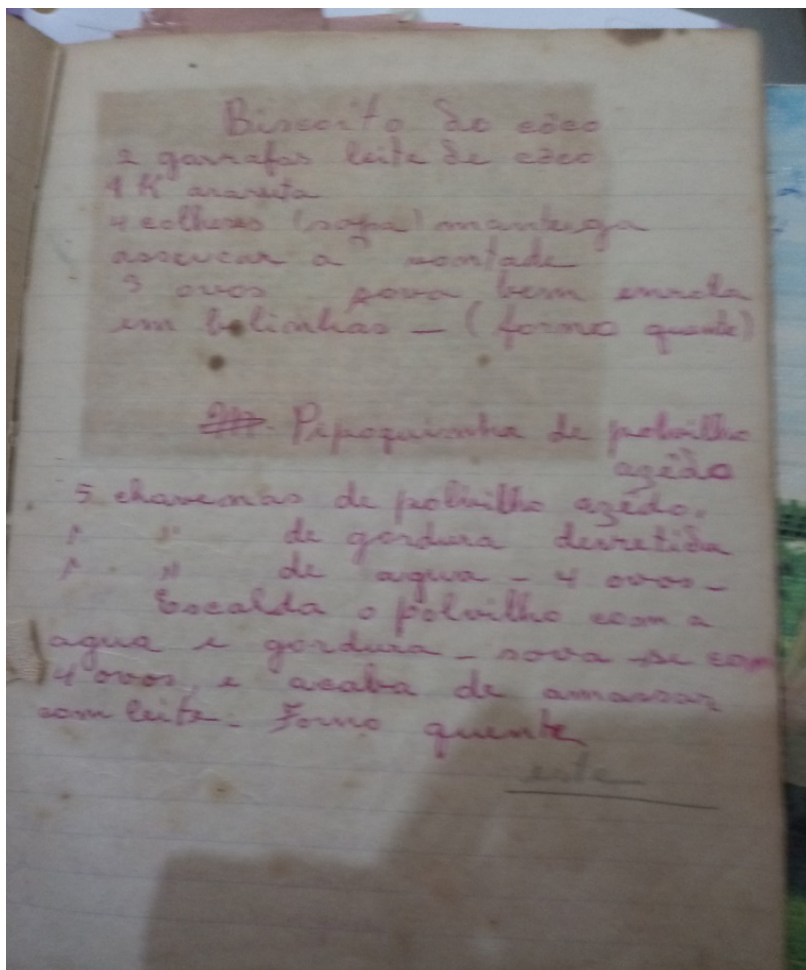 Biscoito de côco
2 garrafas leite de côco
1 K araruta
4 colheres (sopa) manteiga
assucar a vontade
3 ovos sova bem enrola
em bolinhas — (forno quente)
Pipoquinha de polvilho
azêdo
5 chavenas de polvilho azêdo.
1 " de gordura derretida
1 " de agua – 4 ovos –
Escalda o polvilho com a
agua e gordura – sova-se com
4 ovos, e acaba de amassar
com leite. Forno quente
este